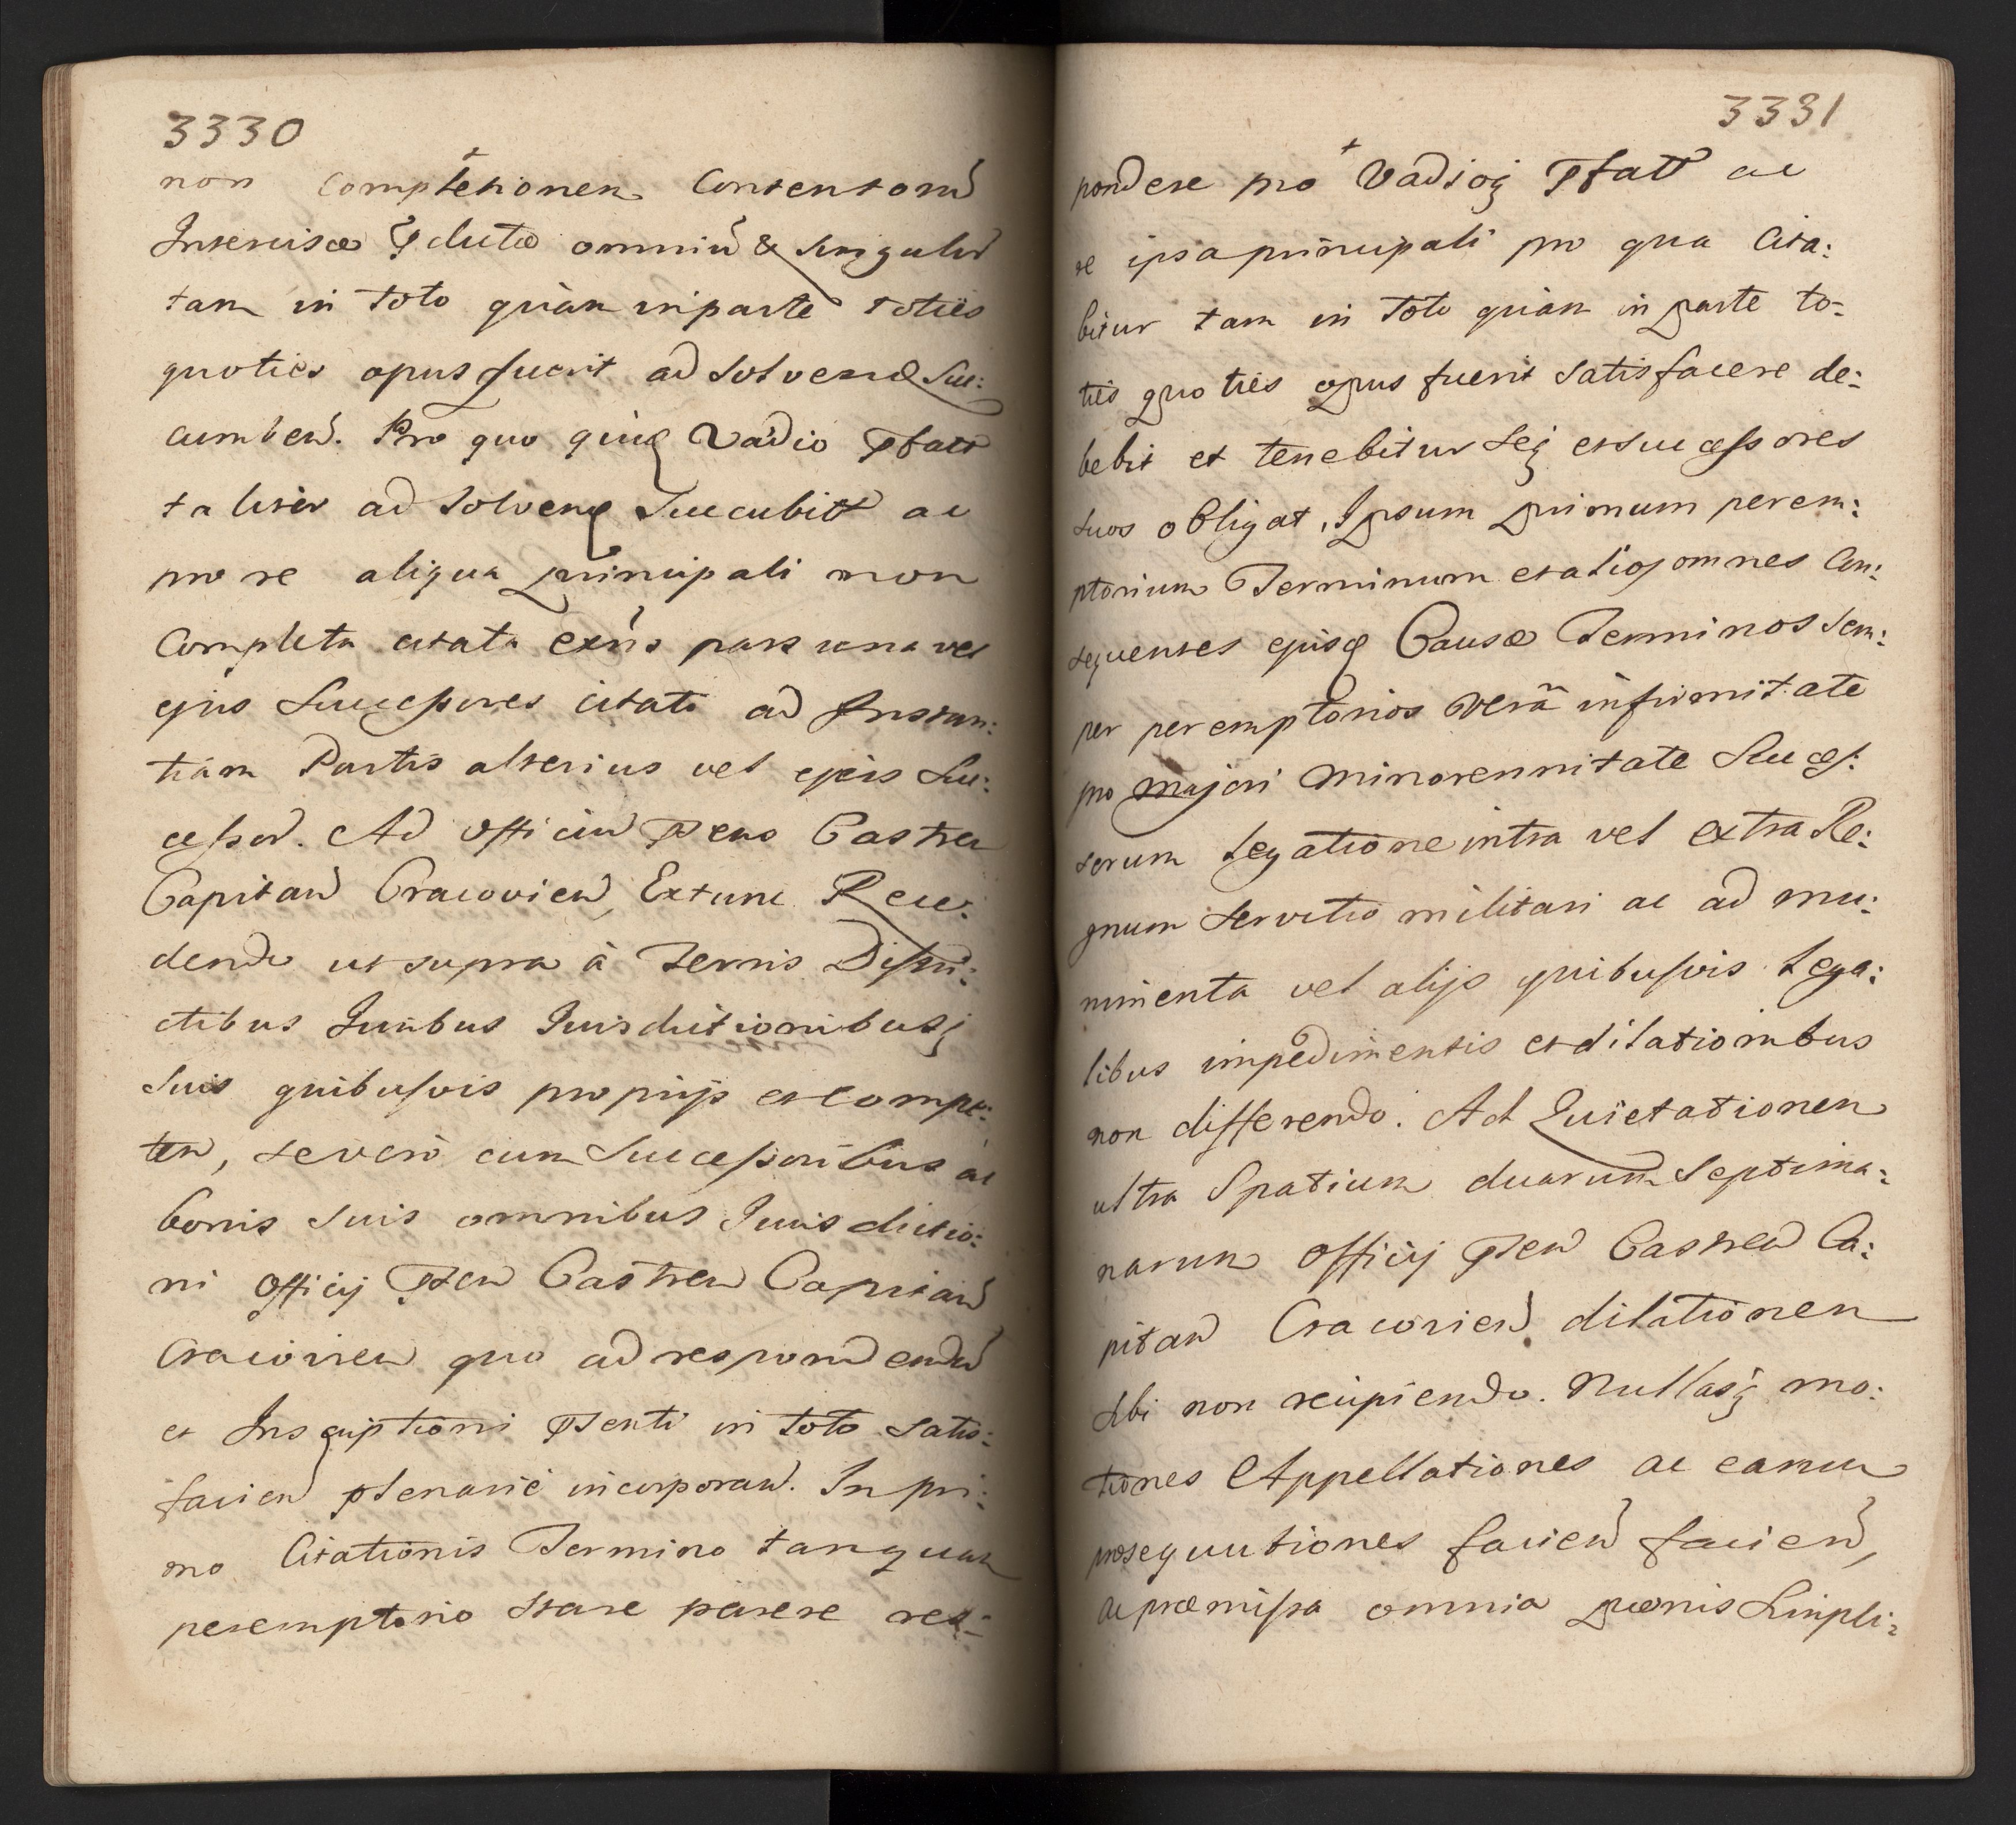 3330
non Completionem Contentorũ
Intercisæ Pdictæ omniũ & singulorũ
tam in toto quàm in parte toties
quoties opus fuerit ad solvend Suc:
cumben. Pro quo quiq Vadio Pfato
taliter ad solvend Succubitt ac
pro re aliqua principali non
Completa citata extis pars una vel
ejus Successores citati ad Instan:
tiam Partis alterius vel ejus Suc:
cessor. Ad officiũ Psens Castren
Capitan Cracovien, Extunc Rece:
dendo ut supra à Terris Distri:
ctibus Juribus Jurisdictionibusq
suis quibusvis proprijs et compe:
ten, se verò cum Successoribus ac
bonis suis omnibus Jurisdictio:
ni Officij Psen Castren Capitan
Cracovien quo ad respondendũ
et Inscriptioni Psenti in toto satis:
facien plenariè incorporan. In pri:
mo Citationis Termino tanquam
peremptorio stare parere res:
3331
pondere pro Vadioq Pfatt ac
re ipsa principali pro qua Cita:
bitur tam in toto quàm in parte to:
ties quoties opus fuerit satisfacere de:
bebit et tenebitur seq et successores
suos obligat, Ipsum primum perem:
ptorium Terminum et alios omnes Con:
sequentes ejusq Causæ Terminos sem:
per peremptorios verâ infirmitate
pro majori minorennitate Succes:
sorum legatione intra vel extra Re:
gnum servitio militari ac ad mu:
nimenta vel alijs quibusvis lega:
libus impedimentis et dilationibus
non differendo. Ad Quietationem
ultra Spatium duarum Septima:
narum Officij Psen Castren Ca:
pitan Cracovien dilationem
sibi non recipiendo. Nullasq mo:
tiones Appellationes ac earum
prosequutiones facien facien,
Ac præmissa omnia pœnis Simpli: